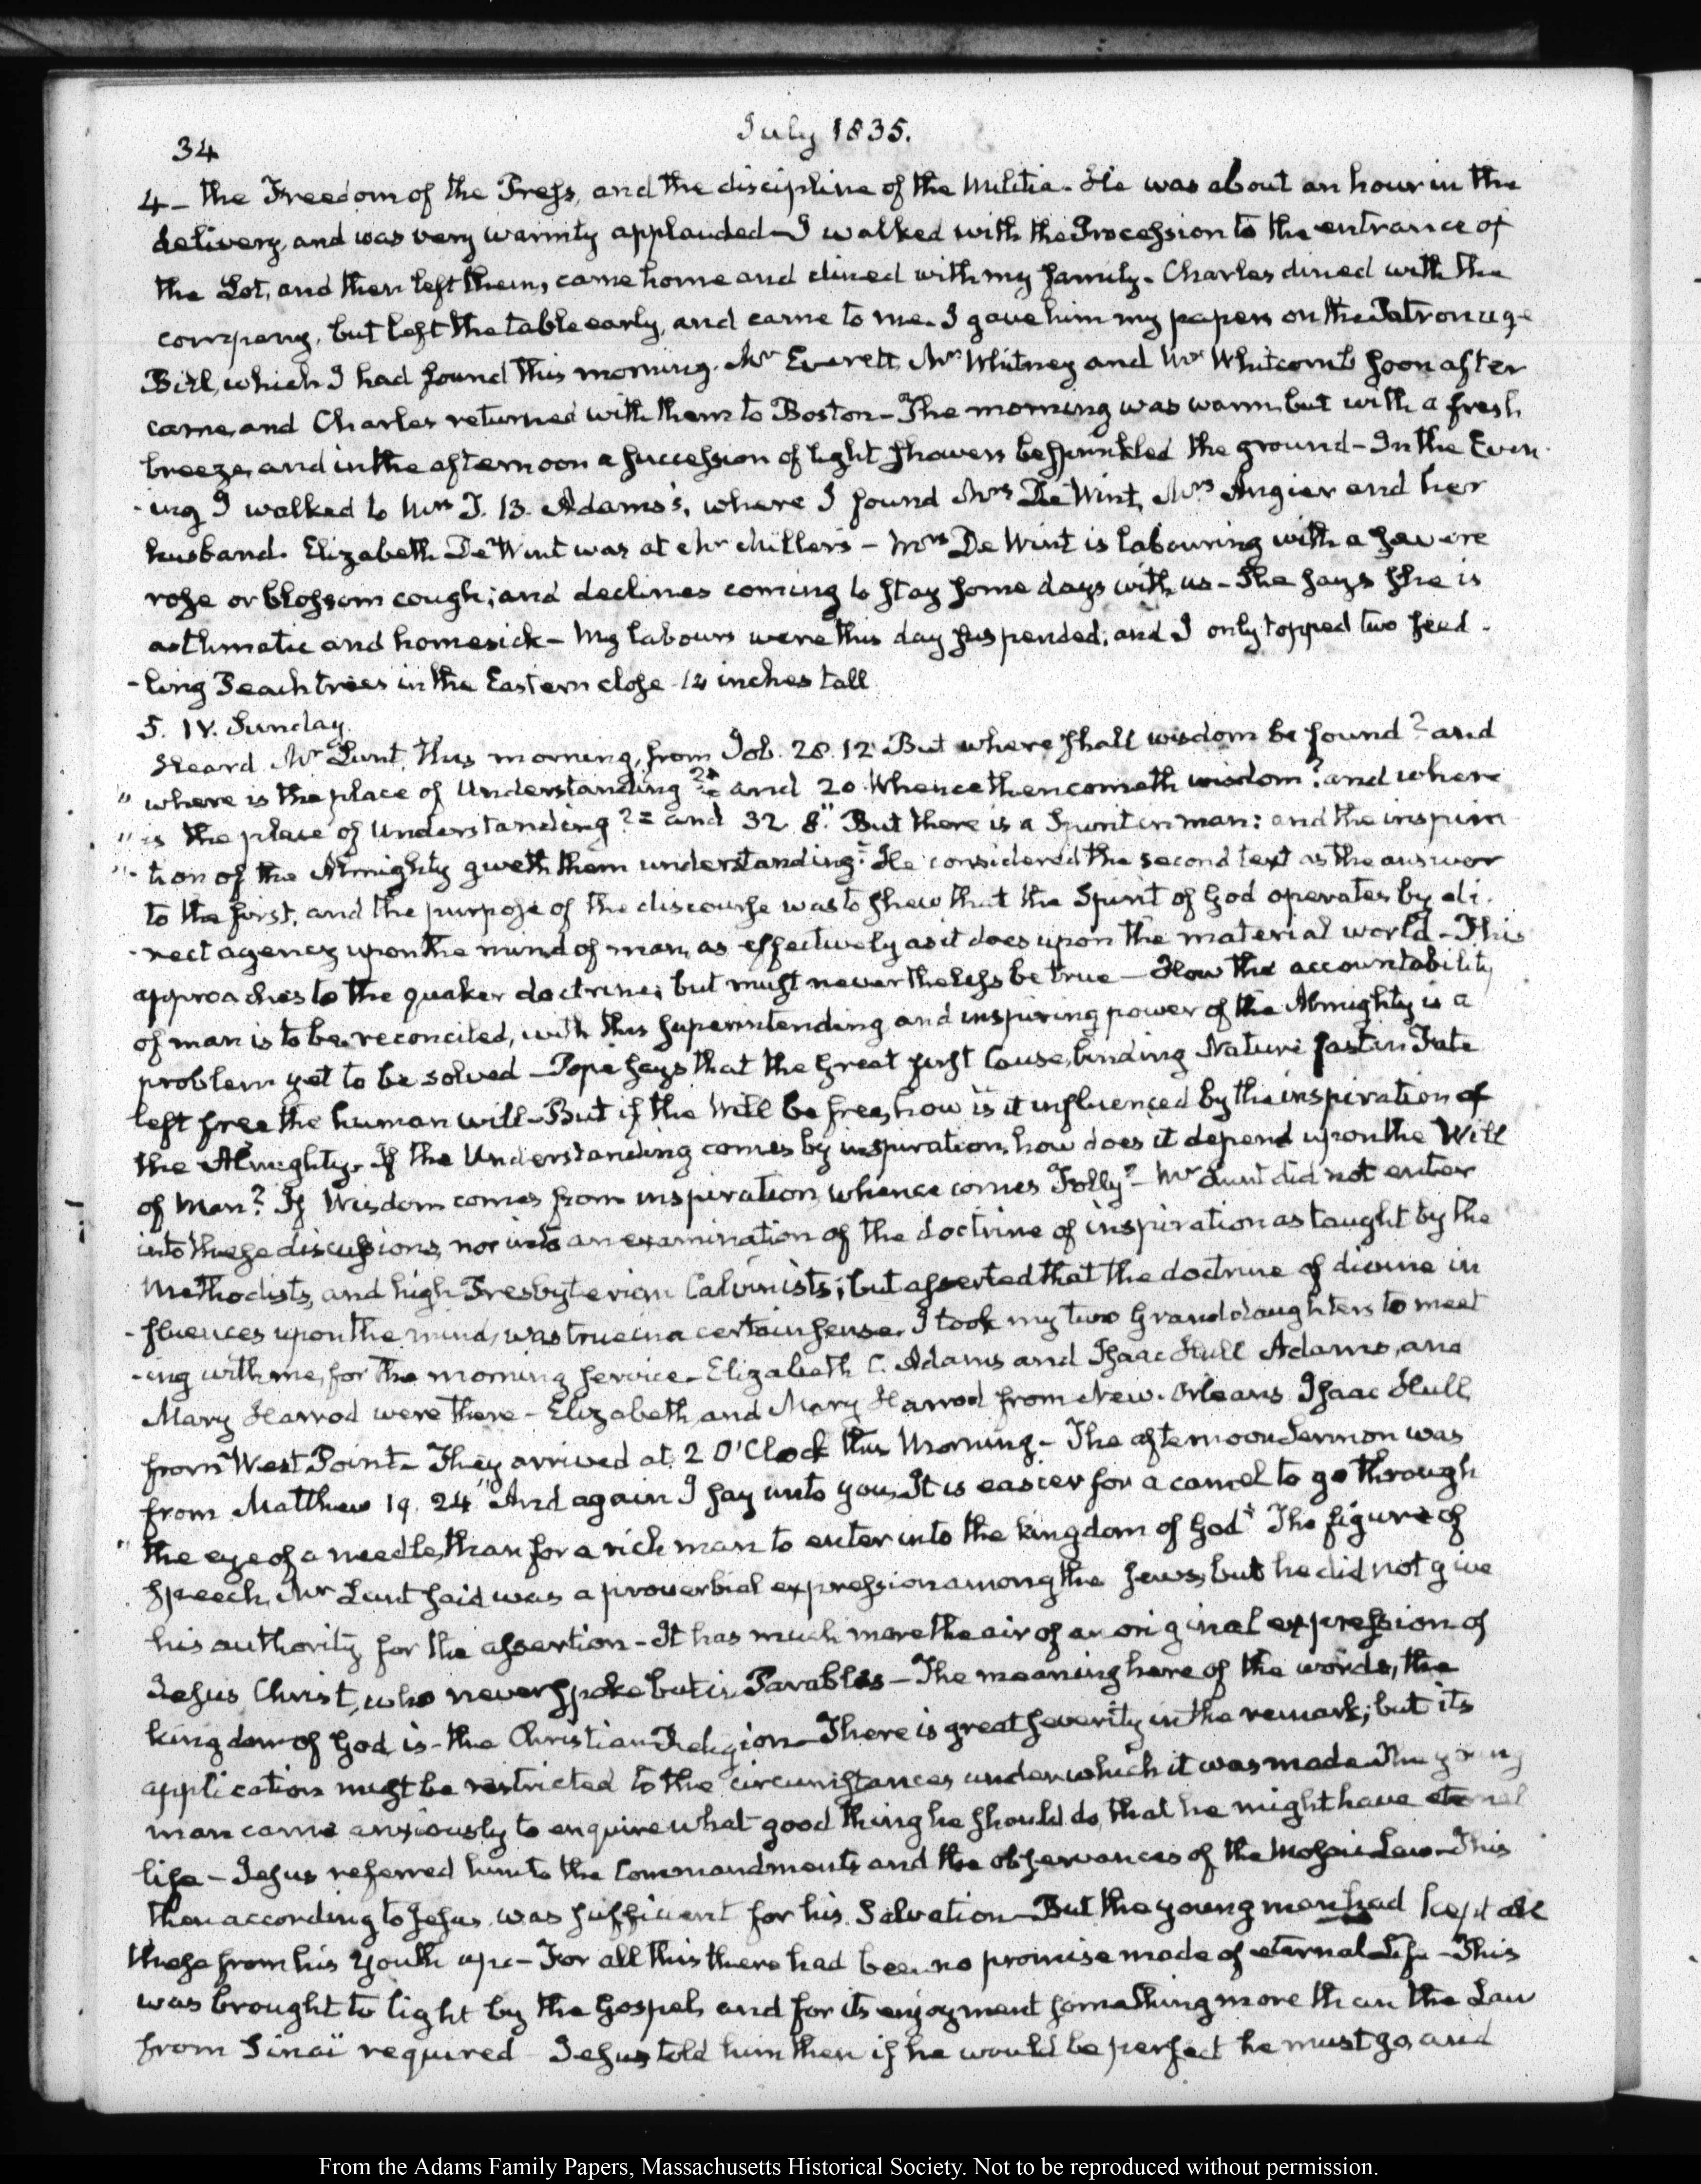 34
July 1835.
4 - the Freedom of the Press, and the discipline of the Militia. He was about an hour in the
delivery, and was very warmly applauded - I walked with the Procession to the entrance of
the Lot, and then left them, came home and dined with my family. Charles dined with the
company, but left the table early, and came to me. I gave him my papers on the Patronage
Bill, which I had found this morning. Mr Everett, Mr Whitney and Mr Whitcomb soon after
came, and Charles returned with them to Boston - The morning was warm, but with a fresh
breeze, and in the afternoon a succession of light showers besprinkled the ground - In the Even-
-ing I walked to Mrs T. B. Adams's, where I found Mrs De Wint, Mrs Angier and her
husband. Elizabeth De Wint was at Mr Miller's - Mrs De Wint is labouring with a severe
rose or blossom cough; and declines coming to stay some days with us - She says she is
asthmatic and homesick - My labours were this day suspended; and I only topped two seed-
-ling Peach trees in the Eastern close 14 inches tall
5. IV. Sunday.
Heard Mr Lunt, this morning, from Job. 28. 12 But where shall wisdom be found? and
" where is the place of Understanding?" and 20. Whence then cometh wisdom? and where
" is the place of Understanding?" and 32 8. "But there is a Spirit in man: and the inspira
"- tion of the Almighty giveth them understanding." He considered the second text as the answer
to the first, and the purpose of the discourse was to shew that the Spirit of God operates by di-
-rect agency upon the mind of man, as effectively as it does upon the material world - This
approaches to the quaker doctrine; but must nevertheless be true - How the accountability
of man is to be reconciled, with this superintending and inspiring power of the Almighty is a
problem yet to be solved - Pope says that the Great first Cause, binding Nature fast in Fate
left free the human will - But if the Will be free, how is it influenced by the inspiration of
the Almighty. If the Understanding comes by inspiration, how does it depend upon the Will
of Man? If Wisdom comes from inspiration, whence comes Folly? - Mr Lunt did not enter
into these discussions, nor into an examination of the doctrine of inspiration as taught by the
Methodists, and high Presbyterian Calvinists; but asserted that the doctrine of divine in
-fluences upon the mind, was true in a certain sense. I took my two Granddaughters to meet
-ing with me, for the morning service - Elizabeth C. Adams and Isaac Hull Adams, and
Mary Harrod were there - Elizabeth and Mary Harrod from New-Orleans Isaac Hull,
from West Point - They arrived at 2 O'Clock this Morning - The afternoon Sermon was
from Matthew 19. 24 "And again I say unto you, It is easier for a camel to go through
" the eye of a needle, than for a rich man to enter into the kingdom of God" The figure of
speech, Mr Lunt said was a proverbial expression among the Jews, but he did not give
his authority for the assertion - It has much more the air of an original expression of
Jesus Christ, who never spoke but in Parables - The meaning here of the words, the
kingdom of God, is - the Christian Religion - There is great severity in the remark; but its
application must be restricted to the circumstances under which it was made. The young
man came anxiously to enquire what good thing he should do, that he might have eternal
life - Jesus referred him to the Commandments and the observances of the Mosaic Law - This
then according to Jesus was sufficient for his Salvation - But the young man had kept all
these from his youth up - For all this there had been no promise made of eternal Life - This
was brought to light by the Gospel, and for its enjoyment something more than the Law
from Sinai required - Jesus told him then if he would be perfect he must go, and
From the Adams Family Papers, Massachusetts Historical Society. Not to be reproduced without permission.